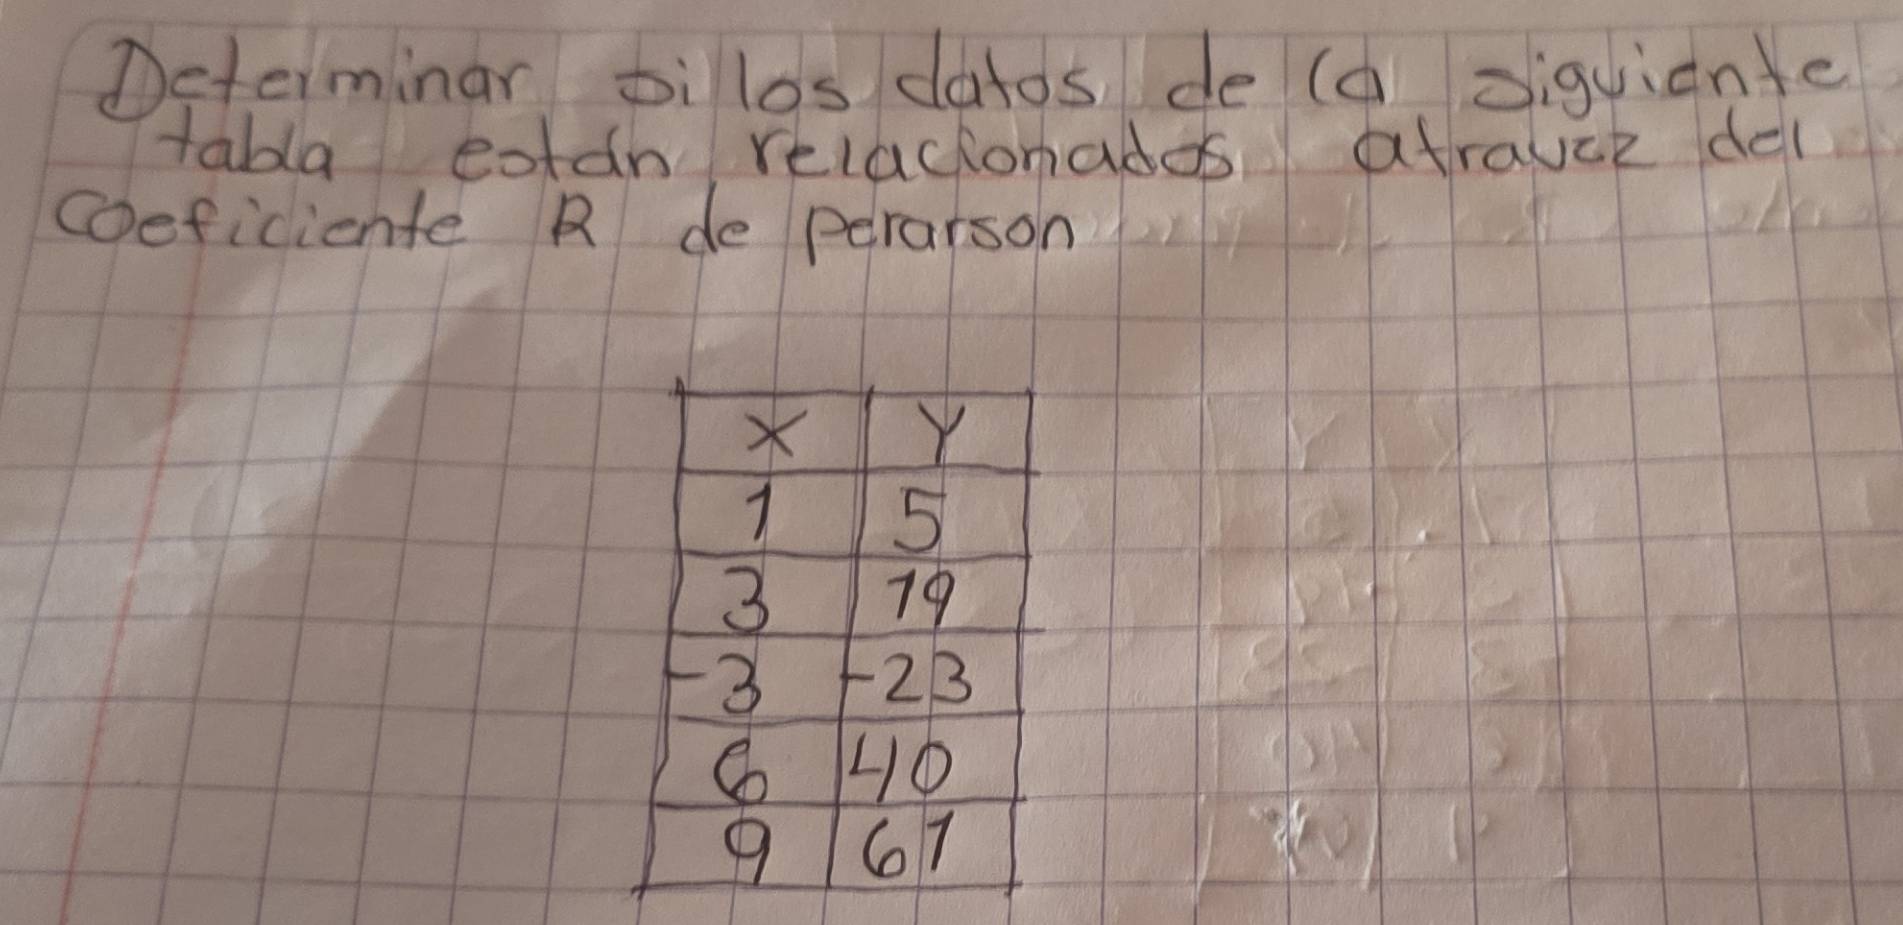 Determinar si los datos de la siguiente
tabla están relacionados atravez del
coeficiente R de perarson
X Y
1 5
3 19
-3 -23
6 40
9 61